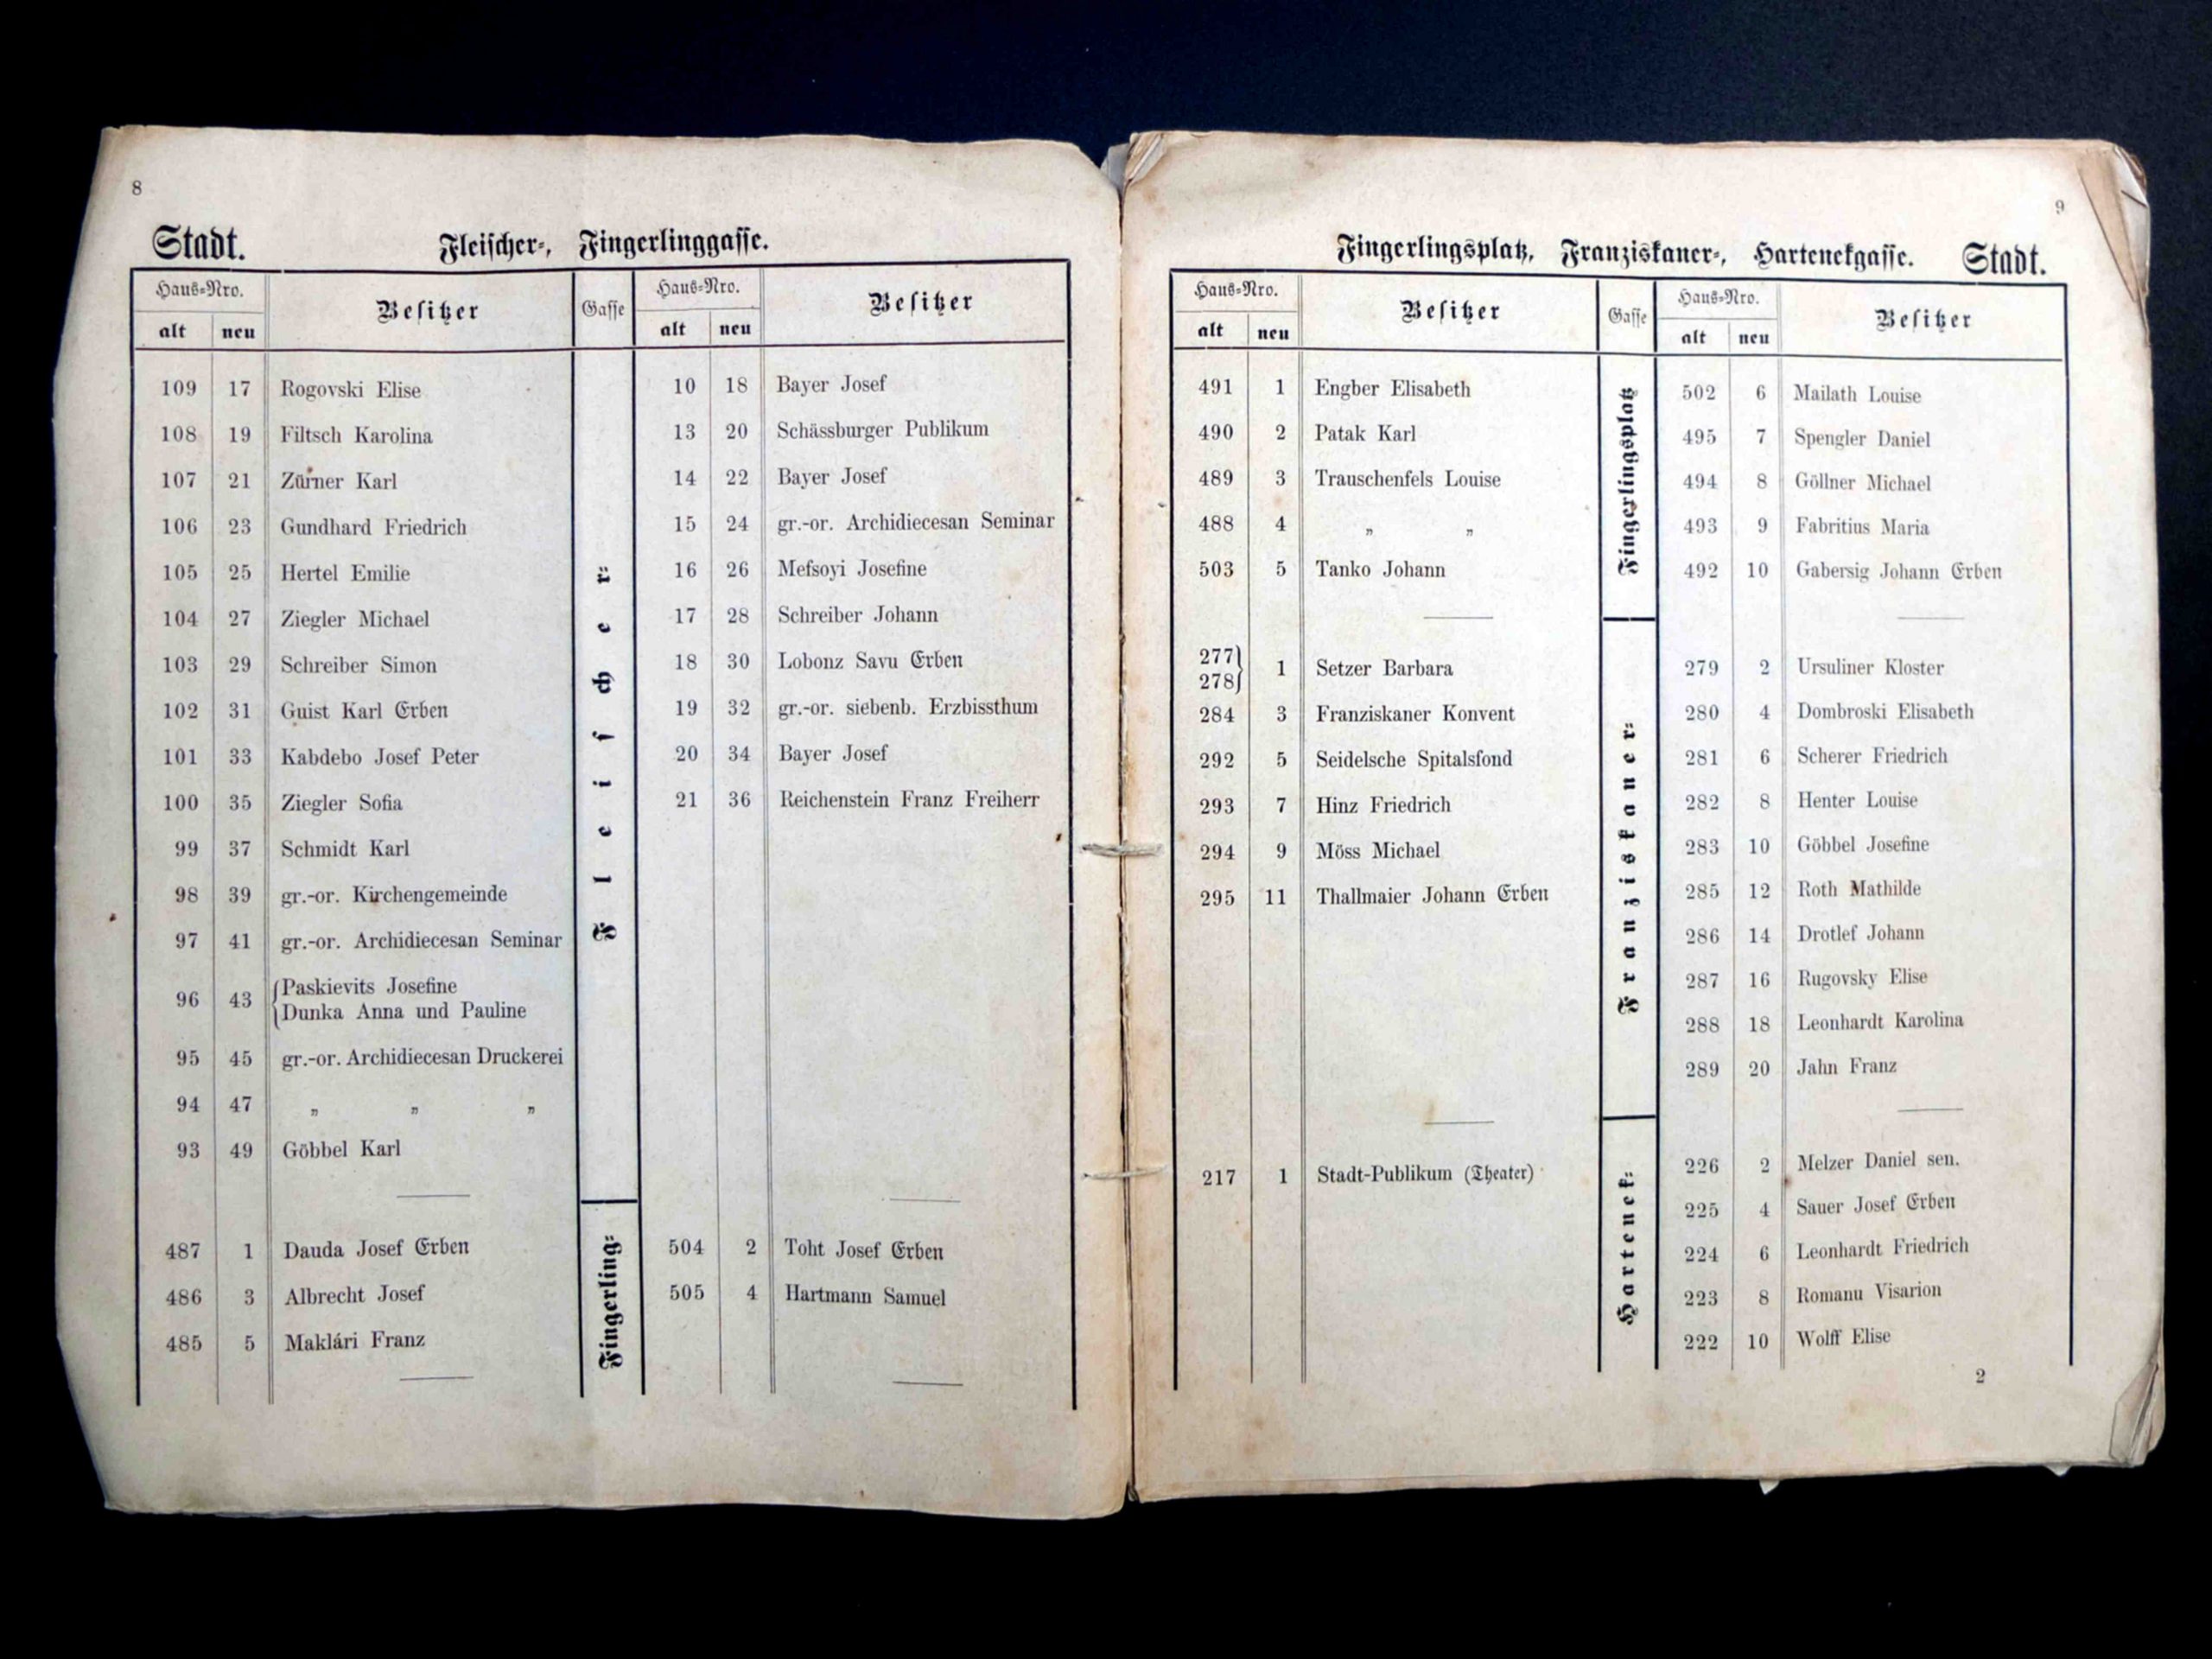 8
Stadt. Fleischer-, Fingerlinggasse.
Haus-Nro. Besitzer Gasse Haus-Nro. Besitzer
alt neu alt neu
109 17 Rogovski Elise 10 18 Bayer Josef
108 19 Filtsch Karolina 13 20 Schässburger Publikum
107 21 Zürner Karl 14 22 Bayer Josef
106 23 Gundhard Friedrich 15 24 gr.-or. Archidiecesan Seminar
105 25 Hertel Emilie 16 26 Mefsoyi Josefine
104 27 Ziegler Michael 17 28 Schreiber Johann
103 29 Schreiber Simon 18 30 Lobonz Savu Erben
102 31 Guist Karl Erben 19 32 gr.-or. siebenb. Erzbissthum
101 33 Kabdebo Josef Peter 20 34 Bayer Josef
100 35 Ziegler Sofia 21 36 Reichenstein Franz Freiherr
99 37 Schmidt Karl
98 39 gr.-or. Kirchengemeinde
97 41 gr.-or. Archidiecesan Seminar
96 43 {Paskievits Josefine
Dunka Anna und Pauline
95 45 gr.-or. Archidiecesan Druckerei
94 47 „ „ „
93 49 Göbbel Karl
Fleischer-
487 1 Dauda Josef Erben 504 2 Toht Josef Erben
486 3 Albrecht Josef 505 4 Hartmann Samuel
485 5 Maklári Franz
Fingerling-
9
Fingerlingsplatz, Franziskaner-, Hartenekgasse. Stadt.
Haus-Nro. Besitzer Gasse Haus-Nro. Besitzer
alt neu alt neu
491 1 Engber Elisabeth 502 6 Mailath Louise
490 2 Patak Karl 495 7 Spengler Daniel
489 3 Trauschenfels Louise 494 8 Göllner Michael
488 4 „ „ 493 9 Fabritius Maria
503 5 Tanko Johann 492 10 Gabersig Johann Erben
Fingerlingsplatz
277} 1 Setzer Barbara 279 2 Ursuliner Kloster
278}
284 3 Franziskaner Konvent 280 4 Dombroski Elisabeth
292 5 Seidelsche Spitalsfond 281 6 Scherer Friedrich
293 7 Hinz Friedrich 282 8 Henter Louise
294 9 Möss Michael 283 10 Göbbel Josefine
295 11 Thallmaier Johann Erben 285 12 Roth Mathilde
286 14 Drotlef Johann
287 16 Rugovsky Elise
288 18 Leonhardt Karolina
289 20 Jahn Franz
Franziskaner-
217 1 Stadt-Publikum (Theater) 226 2 Melzer Daniel sen.
225 4 Sauer Josef Erben
224 6 Leonhardt Friedrich
223 8 Romanu Visarion
222 10 Wolff Elise
Hartenek-
2